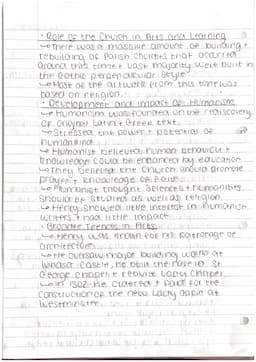 · Role of the Church in Arts and Learning
↳ There was a massive amount of building +
rebuilding of Parish Churches that occurred
around this time + vast majority were built in
the Gothic perpendicular style
↳ Most of the artwork from this time was
based on religion.
· Development and impact of Humanism
↳ Humanism was founded on the rediscovery
of original Latin + Greek text.
↳ Stressed the power + potential of
humankind
↳ Humanist believed human behaviour +
knowledge could be enhanced by education
↳ They believed the Church should promote
prayer + knowledge of
↳ Humanist thought Sciences + humanities
should be studied as well as religion.
↳ Henry showed little interest in humanist
writers + had little impact
· Broader Trends in Arts
↳ Henry was known for his patronage of
architecture
↳ He oversaw major building works at
Windsor Castle, he built the nave in St
George Chapel + rebuilt Lady Chapel
↳ In 1502 he ordered + paid for the
Construction of the new Lady Chapel at
Westminster.